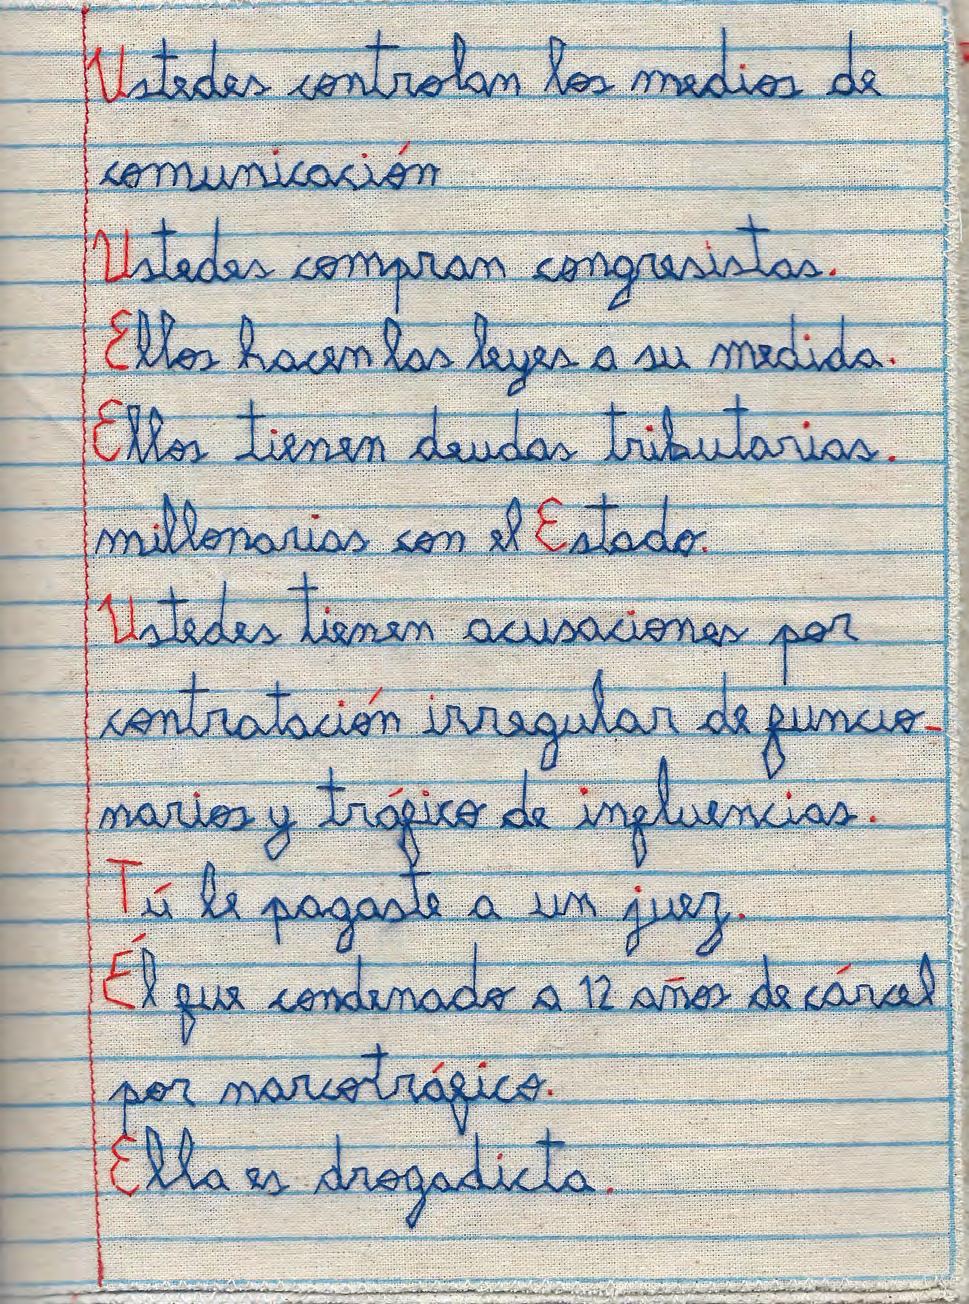 Ustedes controlan los medios de
comunicación
Ustedes compran congresistas.
Ellos hacen las leyes a su medida.
Ellos tienen deudas tributarias.
millonarias con el Estado.
Ustedes tienen acusaciones por
contratación irregular de funcio-
narios y tráfico de influencias.
Tú le pagaste a un juez.
Él fue condenado a 12 años de cárcel
por narcotráfico.
Ella es drogadicta.